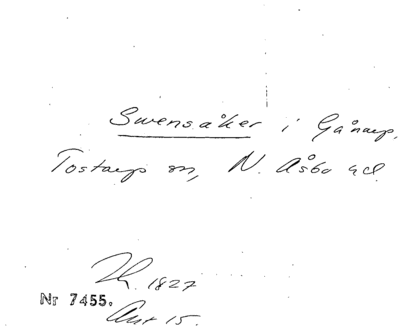 Swensåker i Gånarp,
Tostarp sn, N. Åsbo hd.
1827
Nr 7455.
Ant 15.